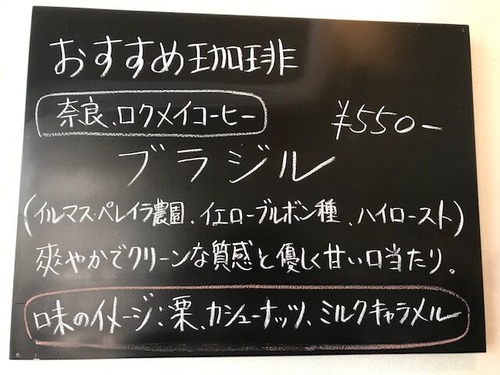 おすすめ珈琲
奈良、ロクメイコーヒー ¥550-
ブラジル
(イルマス・ペレイラ農園、イエローブルボン種、ハイロースト)
爽やかでクリーンな質感と優しく甘い口当たり。
味のイメージ:栗、カシューナッツ、ミルクキャラメル